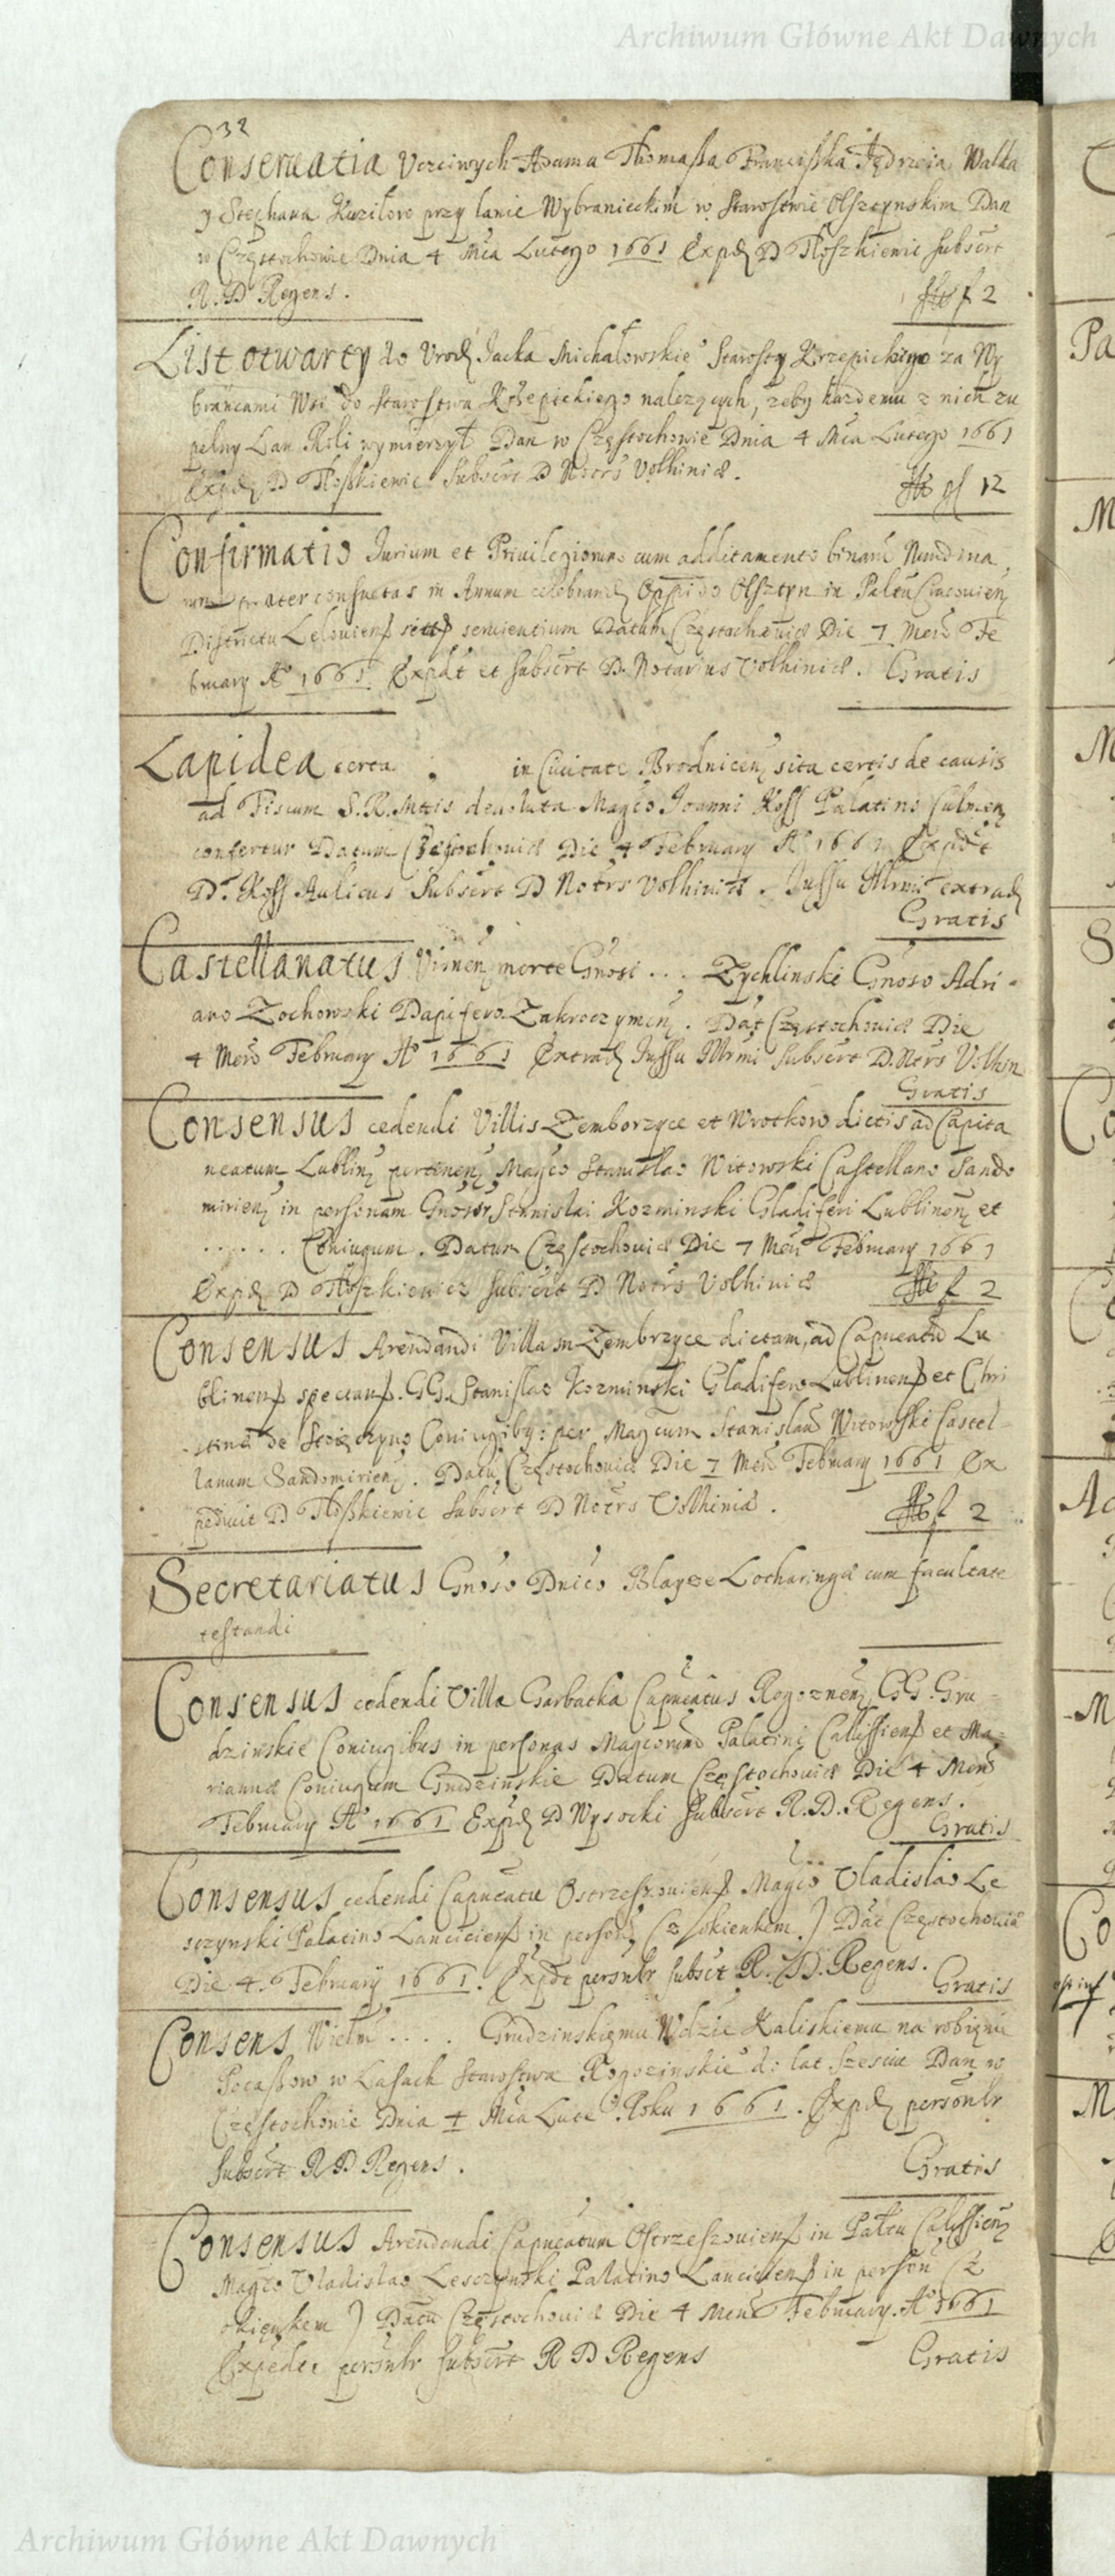 Archiwum Główne Akt Dawnych
32
Conseruatia Vczciwych Adama Thomassa Franciszka Jędrzeia Walka
y Stephana Kuziłow przy łanie Wybranieckim w Starostwie Olsztynskim Dan
w Częstochowie Dnia 4 Mca Lutego 1661 Exped D Tłoszkiewic subscrt
R. D Regens. f 2
List otwarty do Urod Jacka Michałowskie° Starosty Krzepickiego za Wy
brancami Wsi do Starostwa Krzepickiego nalezących, zeby kazdemu z nich zu
pełny Łan Roli wymierzył Dan w Częstochowie Dnia 4 Mca Lutego 1661
Exped D Tłoszkiewic Subscrt D Notrs Volhiniæ. 12
Confirmatio Iurium et Priuilegiorum cum additamento binarũ Nundina
rum præter consuetas in Annum celebrand Oppido Olsztyn in Pałtu Cracouien
Districtu Lelouiens sitt seruientium Datum Częstochouiæ Die 7 Mens Fe
bruary A° 1661 Expdt et subscrt D. Notarius Volhiniæ. Gratis
Lapidea certa . in Ciuitate Brodnicen sita certis de causis
ad Fiscum S. R. Mttis deuoluta Magco Ioanni Koss Palatino Culmen
confertur Datum Częstochouiæ Die 4 February A° 1661 Expdt
D. Koss Aulicus Subscrt D Notrs Volhiniæ. Iussu Illrmi extrad
Gratis
Castellanatus morte Gnosi ... Zychlinski Gnoso Adri
ano Zochowski Dapifero Zakroczymen. Dat Częstochouiæ Die
4 Mens February A° 1661 Extrad Iussu Illrmi Subscrt D. Notrs Volhin
Gratis
Consensus cedendi Villis Zemborzyce et Wrotkow dictis ad Capita
neatum Lublin pertinen Magco Stanislao Witowski Castellano Sando
mirien in personam Gnosor Stanislai Kozminski Gladiferi Lublinen et
...... Coniugum. Datum Częstochouiæ Die 7 Mens February 1661
Exped D Tłoszkiewicz subscrt D Notrs Volhiniæ f 2
Consensus Arendandi Villam Zembrzyce dictam, ad Capneatũ Lu
blinens spectans. GG. Stanislao Kozminski Gladifero Lublinens et Chri
stinæ de Coniugiby: per Magcum Stanislaũ Witowski Castel
lanum Sandomirien. Datũ Częstochouiæ Die 7 Mens February 1661 Ex
pediuit D Tłoszkiewic Subscrt D Notrs Volhiniæ. f 2
Secretariatus Gnoso Dnico Blayze Lotharingæ cum facultate
testandi
Consensus cedendi Villa Garbatka Capneatus Rogoznen GG. Gru
dzinskie Coniugibus in personas Magcorum Palatini Calissiens et Ma
riannæ Coniugum Grudzinskie Datum Częstochouiæ Die 4 Mens
February A° 1661 Exped D Wysocki Subscrt R. D. Regens.
Gratis
Consensus cedendi Capneatu Ostrzeszouiens Magco Vladislao Le
sczynski Palatino Lanciciens in person (z okienkem.) Dat Częstochouiæ
Die 4. February 1661. Expdt persnlr subsct R. D. Regens. Gratis
Consens Wielm .... Grudzinskiemu Wdzie Kaliskiemu na robienie
Potaszow w Lasach Starostwa Rogozinskie° do lat szesciu Dan w
Częstochowie Dnia 4 Mca Lute° Roku 1661. Exped personlr
subscrt R D Regens. Gratis
Consensus Arendandi Capneatum Ostrzeszouiens in Pałtu Calissien
Magco Vladislao Lesczynski Palatino Lanciciens in person (z
okienkem) Datũ Częstochouiæ Die 4 Mens February. A° 1661
Expedt persnlr subscrt R D Regens Gratis
Archiwum Główne Akt Dawnych